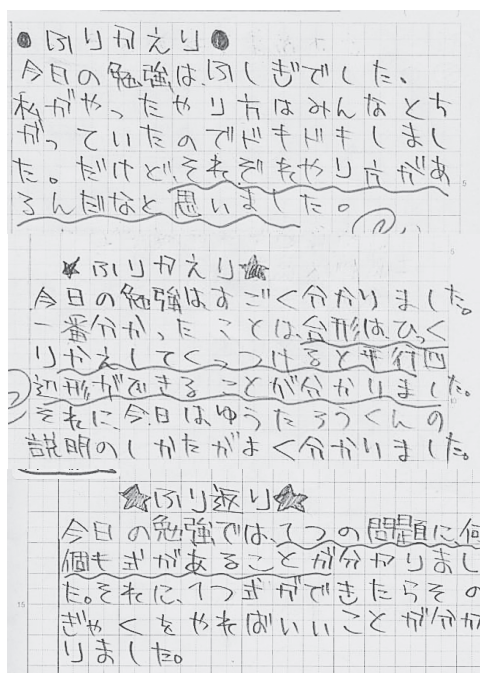 ●ふりかえり●
今日の勉強は、ふしぎでした。
私がやったやり方はみんなとち
がっていたのでドキドキしまし
た。だけど、それぞれやり方があ
るんだなと思いました。
★ふりかえり★
今日の勉強はすごく分かりました。
一番分かったことは、台形は、ひっく
りかえしてくっつけると平行四
辺形ができることが分かりました。
それに、今日はゆうたろうくんの
説明のしかたがよく分かりました。
★ふり返り★
今日の勉強では、1つの問題に何
個も式があることが分かりまし
た。それに、1つ式ができたらその
ぎゃくをやればいいことが分か
りました。